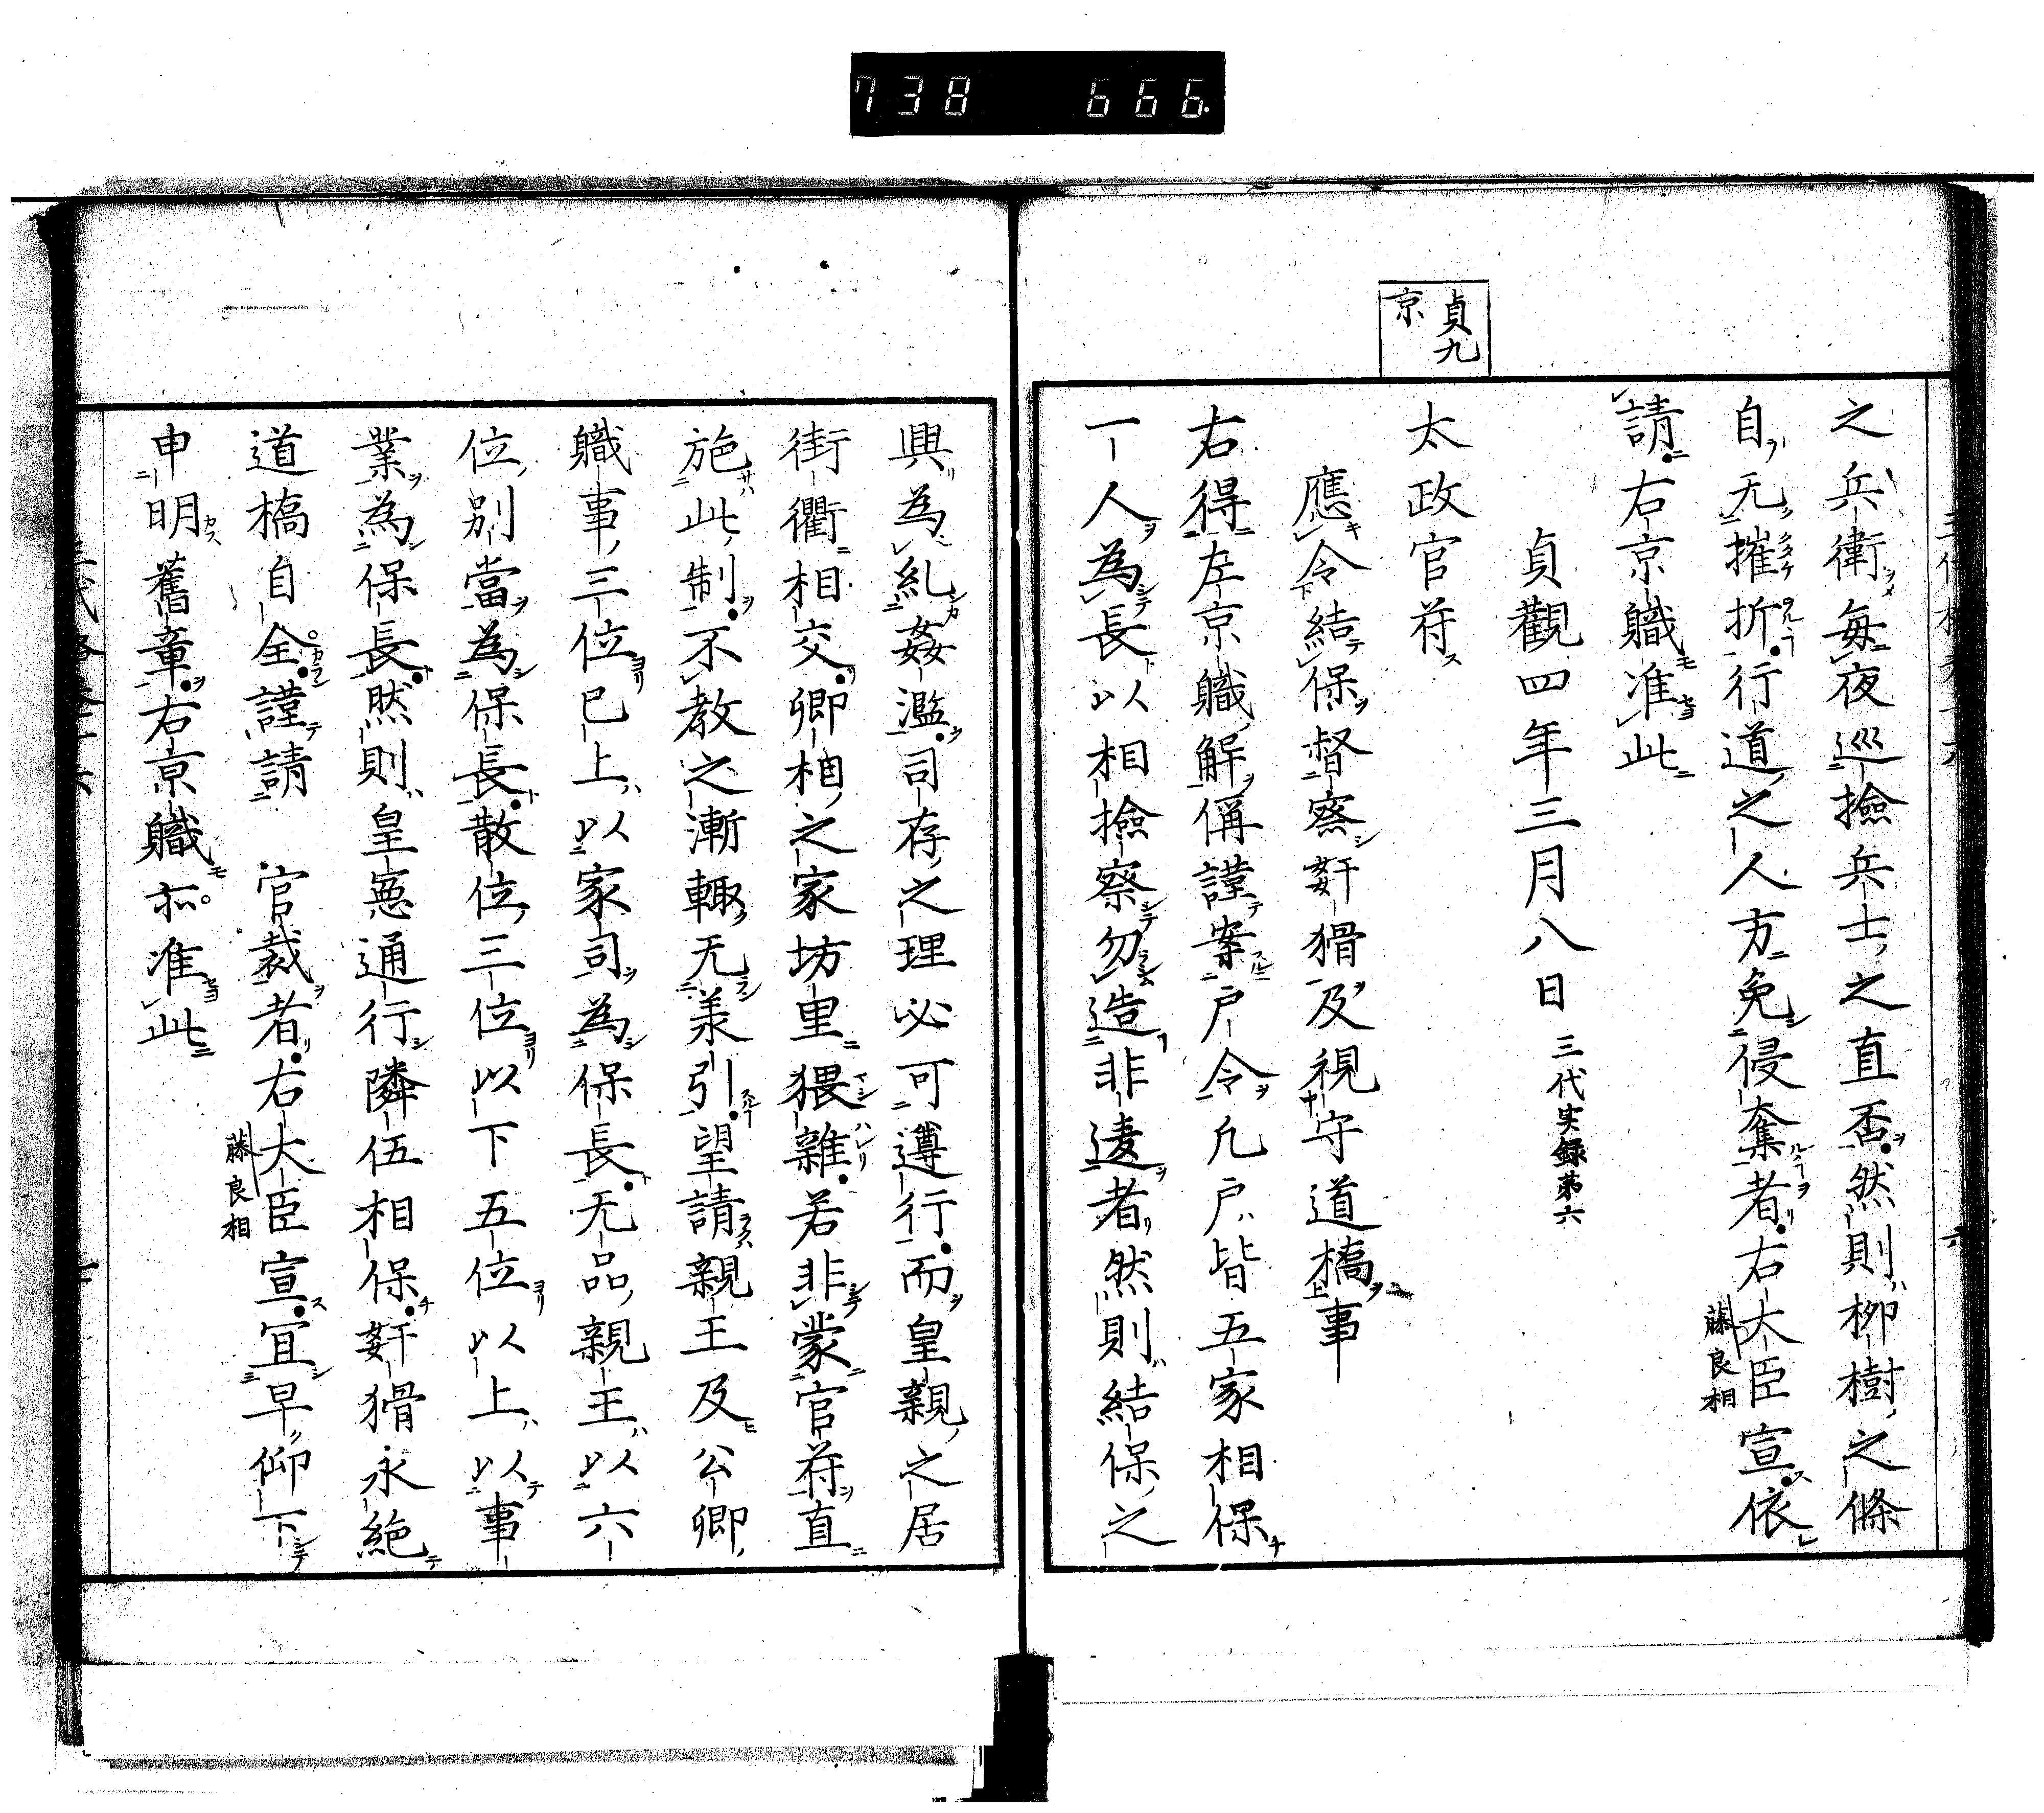 738 666
貞九
京
之兵衛每夜巡撿兵士之直否然則柳樹之條
自无摧折行道之人方免侵奪者右大臣宣依
藤良相
請右京軄准此
貞觀四年三月八日 三代実録第六
太政官符
應令結保督察姧猾及視守道橋事
右得左京軄解偁謹案戶令凡戶皆五家相保
一人為長以相撿察勿造非違者然則結保之
興為糺姦濫司存之理必可遵行而皇親之居
街衢相交卿相之家坊里猥雜若非蒙官符直
施此制不教之漸輙无羕引望請親王及公卿
軄事三位已上以家司為保長无品親王以六
位別當為保長散位三位以下五位以上以事
業為保長然則皇憲通行隣伍相保姧猾永絕
道橋自全謹請 官裁者右大臣宣宜早仰下
藤良相
申明舊章右京軄亦准此